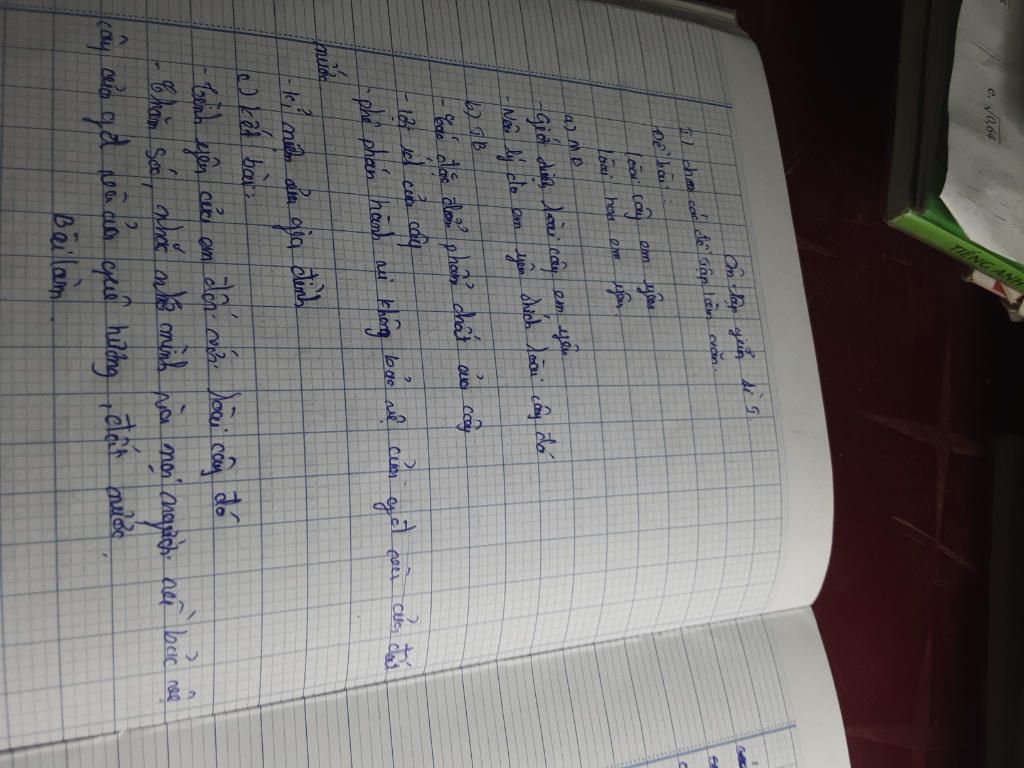 Ôn tập giữa kì I
I) chọn các đề tập làm văn.
Đề bài:
Loài cây em yêu
Loài hoa em yêu.
a) MB
- Giới thiệu loài cây em yêu
- Nêu lý do em yêu thích loài cây đó
b) TB
- Các đặc điểm phẩm chất của cây
- Lợi ích của cây
- phê phán hành vi không bảo vệ của gđ và của đất
nước
- kỉ niệm của gia đình
c) kết bài:
- tình yêu của em đối với loài cây đó
- Chăm sóc, nhắc nhở mình và mọi người nên bảo vệ
cây của gđ và của quê hương, đất nước.
Bài làm.
TIẾNG ANH